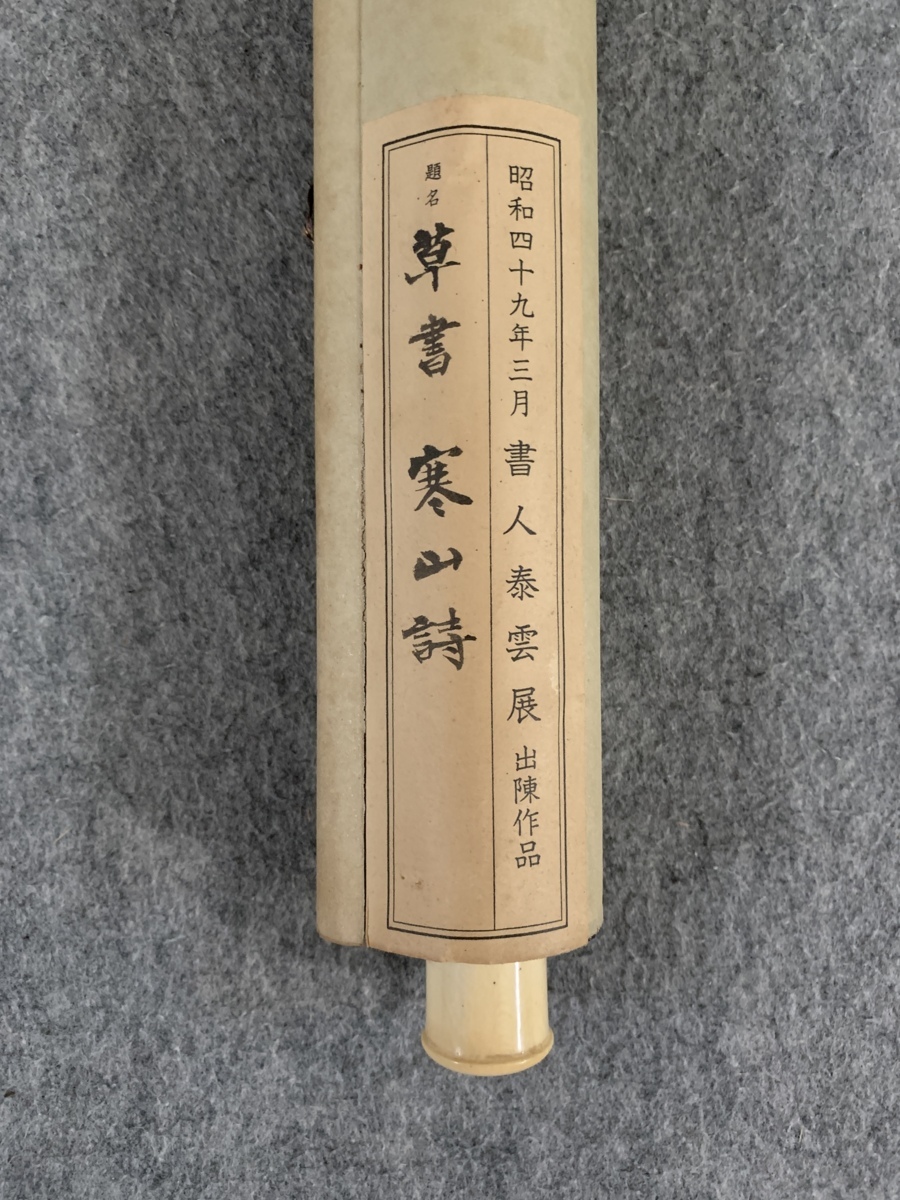 昭和四十九年三月 書人泰雲展 出陳作品
題名 草書 寒山詩